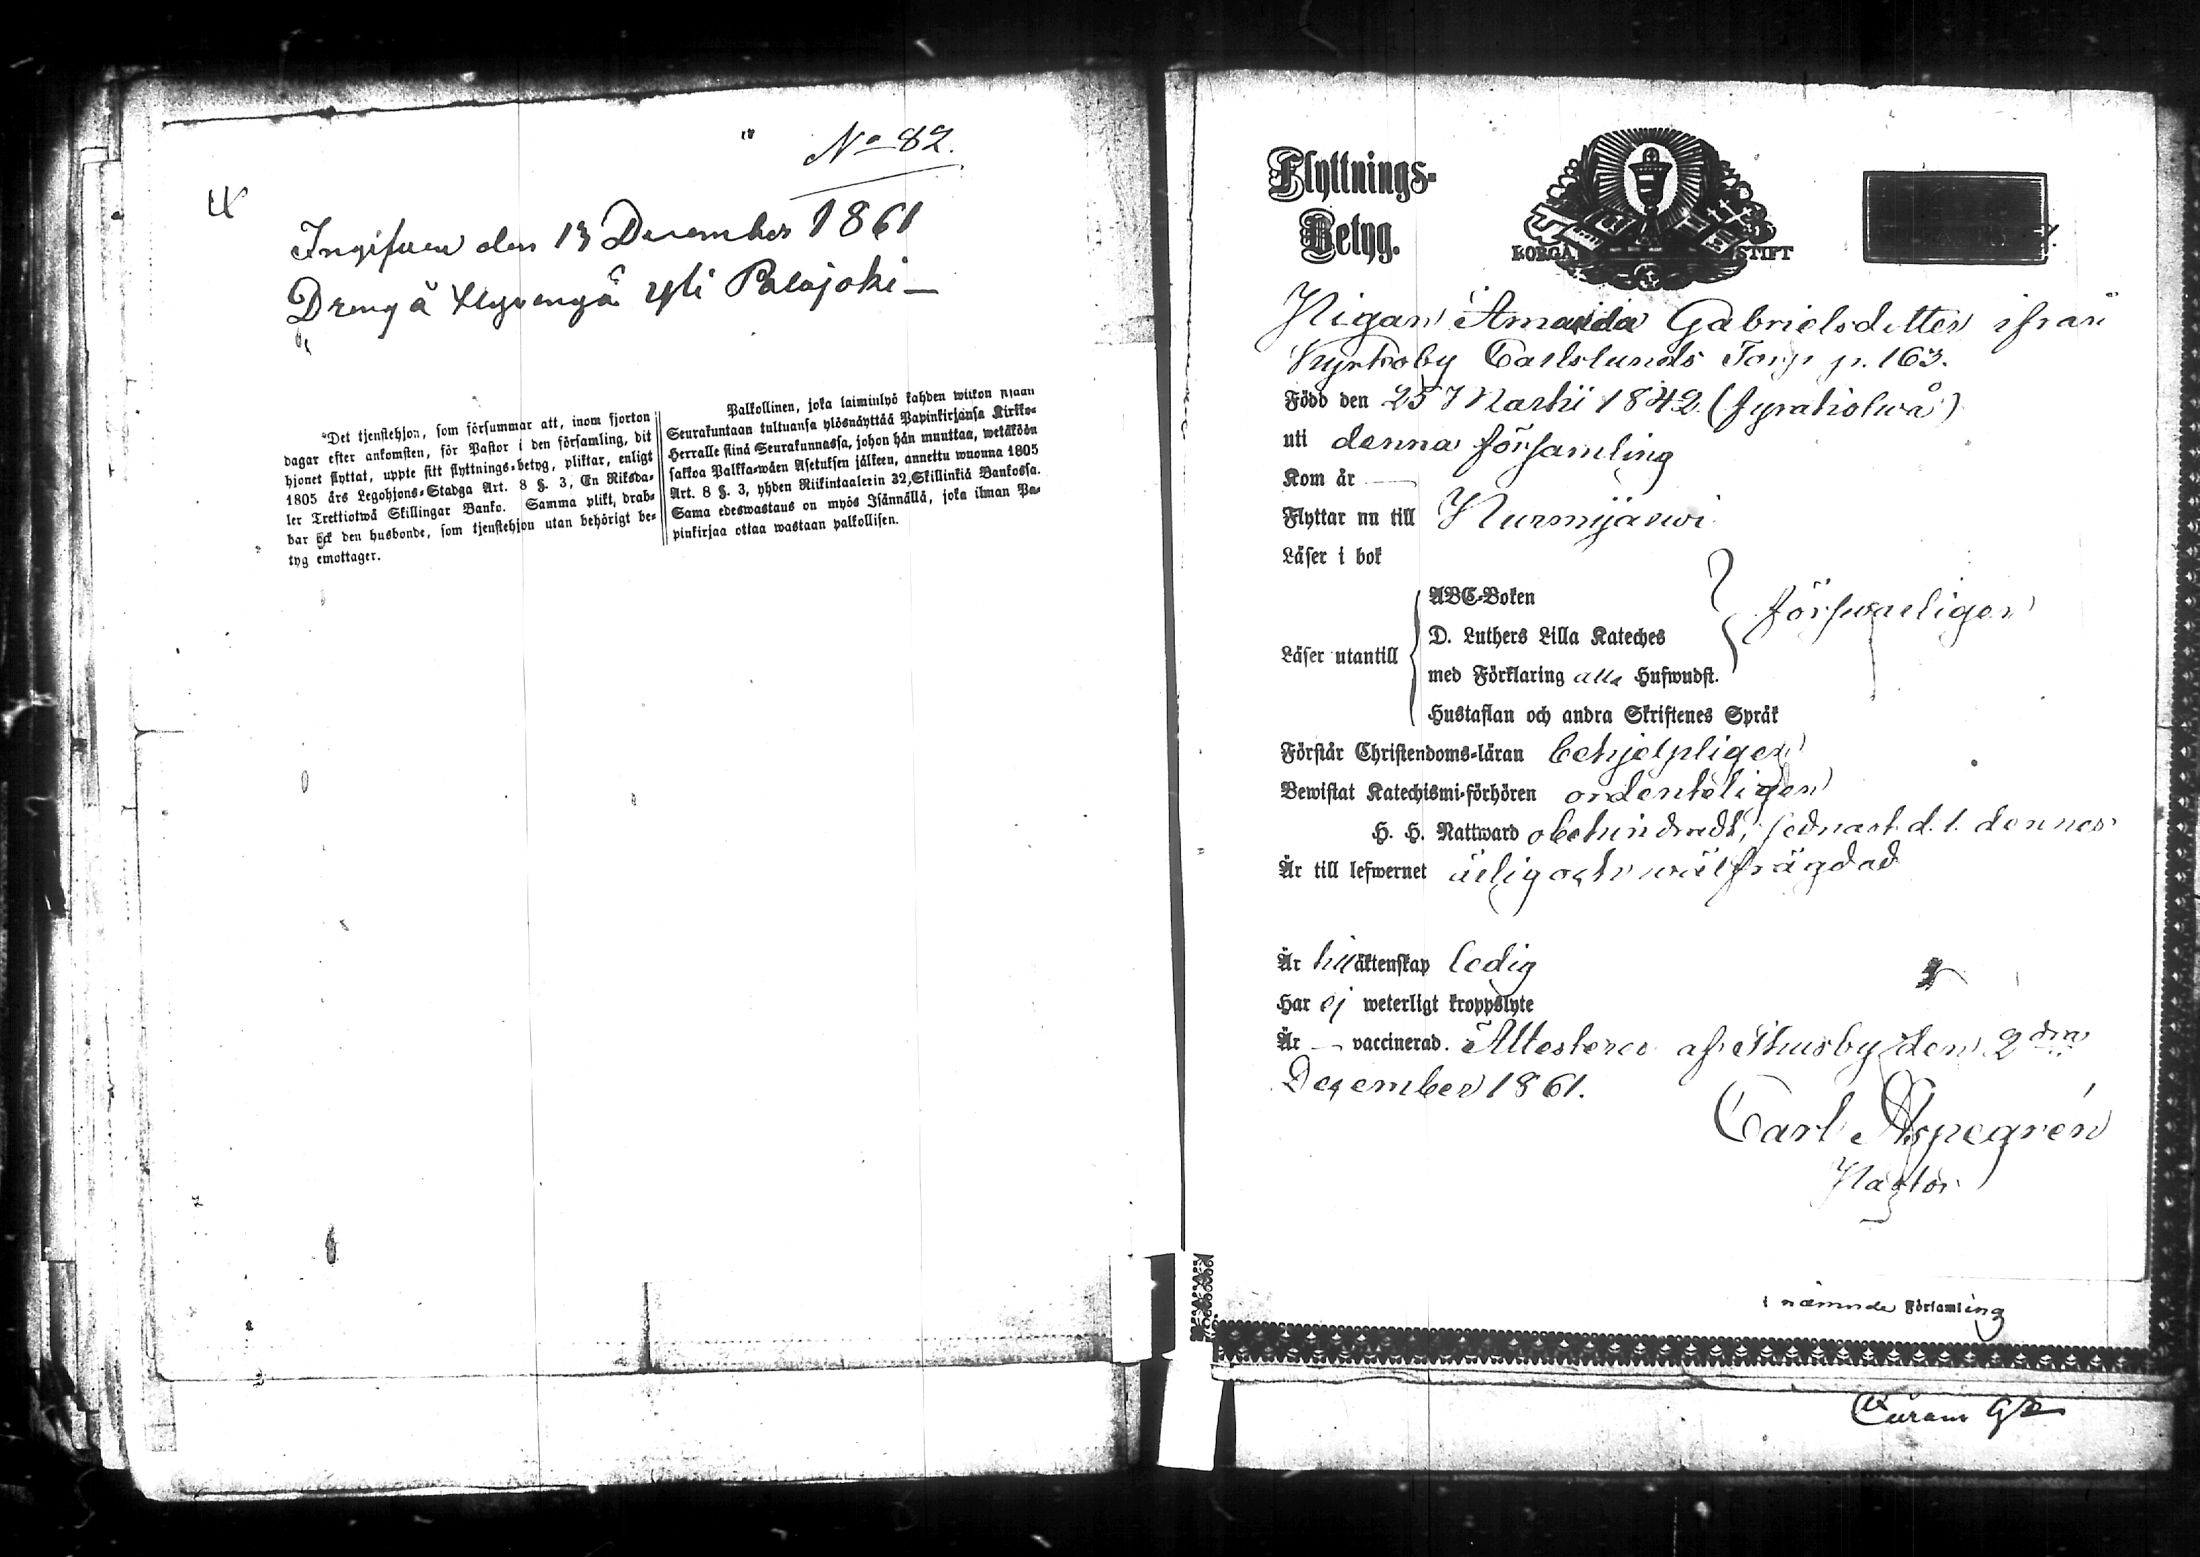 No 82.
Ingifven den 13 December 1861
Dreng å Hyvengå Yli Palojoki
Det tjenstehjon, som försummar att, inom fjorton
dagar efter ankomsten, för Pastor i den församling, dit
hjonet flyttat, uppte sitt flyttnings-betyg, pliktar, enligt
1805 års Legohjons-Stadga Art. 8 §. 3, En Riksda-
ler Trettiotwå Skillingar Banko. Samma plikt, drab-
bar ock den husbonde, som tjenstehjon utan behörigt be-
tyg emottager.
Palkollinen, joka laiminlyö kahden wiikon sisään
Seurakuntaan tultuansa ylösnäyttää Papinkirjansa Kirkko-
Herralle siinä Seurakunnassa, johon hän muuttaa, wetäköön
sakkoa Palkka-wäen Asetuksen jälkeen, annettu wuonna 1805
Art. 8 §. 3, yhden Riikintaalerin 32 Skillinkiä Bankossa.
Sama edeswastaus on myös Isännällä, joka ilman Pa-
pinkirjaa ottaa wastaan palkollisen.
Flyttnings-
Betyg.
BORGÅ STIFT
Pigan Amanda Gabrielsdotter ifrån
Kyrkoby Carlslunds Torp p. 163.
Född den 25 Martii 1842 (fyratiotwå)
uti denna församling
Kom år
Flyttar nu till Nurmijärwi
Läser i bok
ABC-Boken
D. Luthers Lilla Kateches försvarligen
Läser utantill
med Förklaring alla Hufwudst.
Hustaflan och andra Skriftenes Språk
Förstår Christendoms-läran behjelpligen
Bewistat Katechismi-förhören ordenteligen
H. H. Nattward obehindradt, sednast d. 1. dennes
Är till lefwernet ärlig och wälfrägdad
Är till äktenskap ledig
Har ej weterligt kroppslyte
Är vaccinerad. Attesterar af Thusby den 2dra
December 1861.
Carl Aspegrén
Pastor
i nämnde Församling